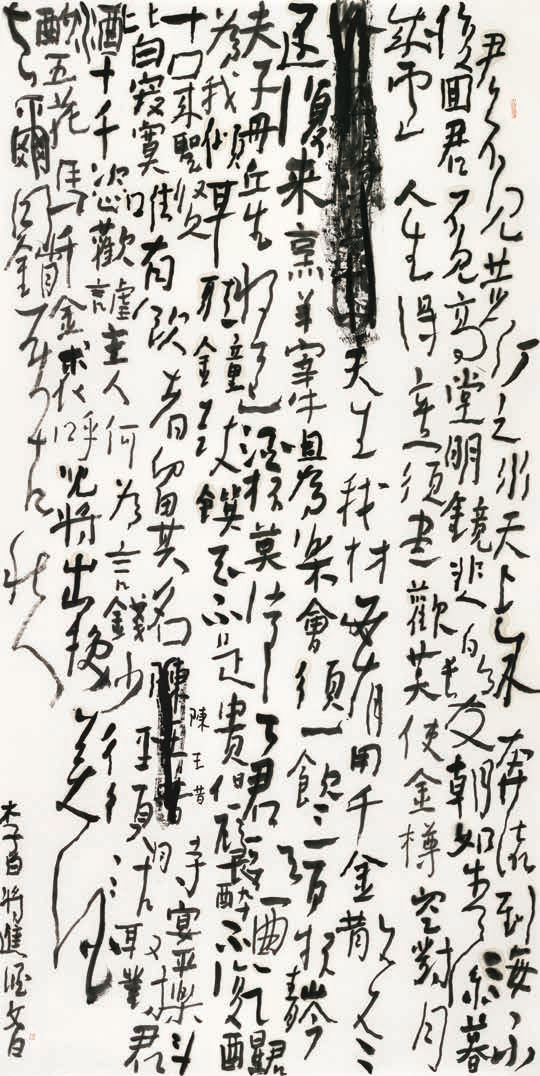 君不見黄河之水天上来奔流到海不
復回君不見高堂明鏡悲白髮朝如青絲暮
成雪人生得意須盡歡莫使金樽空對月
天生我材必有用千金散盡
還復来烹羊宰牛且為樂會須一飲三百杯岑
夫子丹丘生將進酒杯莫停与君歌一曲請君
為我傾耳聽鐘鼓饌玉不足貴但願長醉不復醒
古来聖賢皆寂寞惟有飲者留其名陳王昔時宴平樂斗
酒十千恣歡謔主人何為言錢少徑須沽取對君
酌五花馬千金裘呼兒將出換美酒
与爾同銷万古愁
李白將進酒